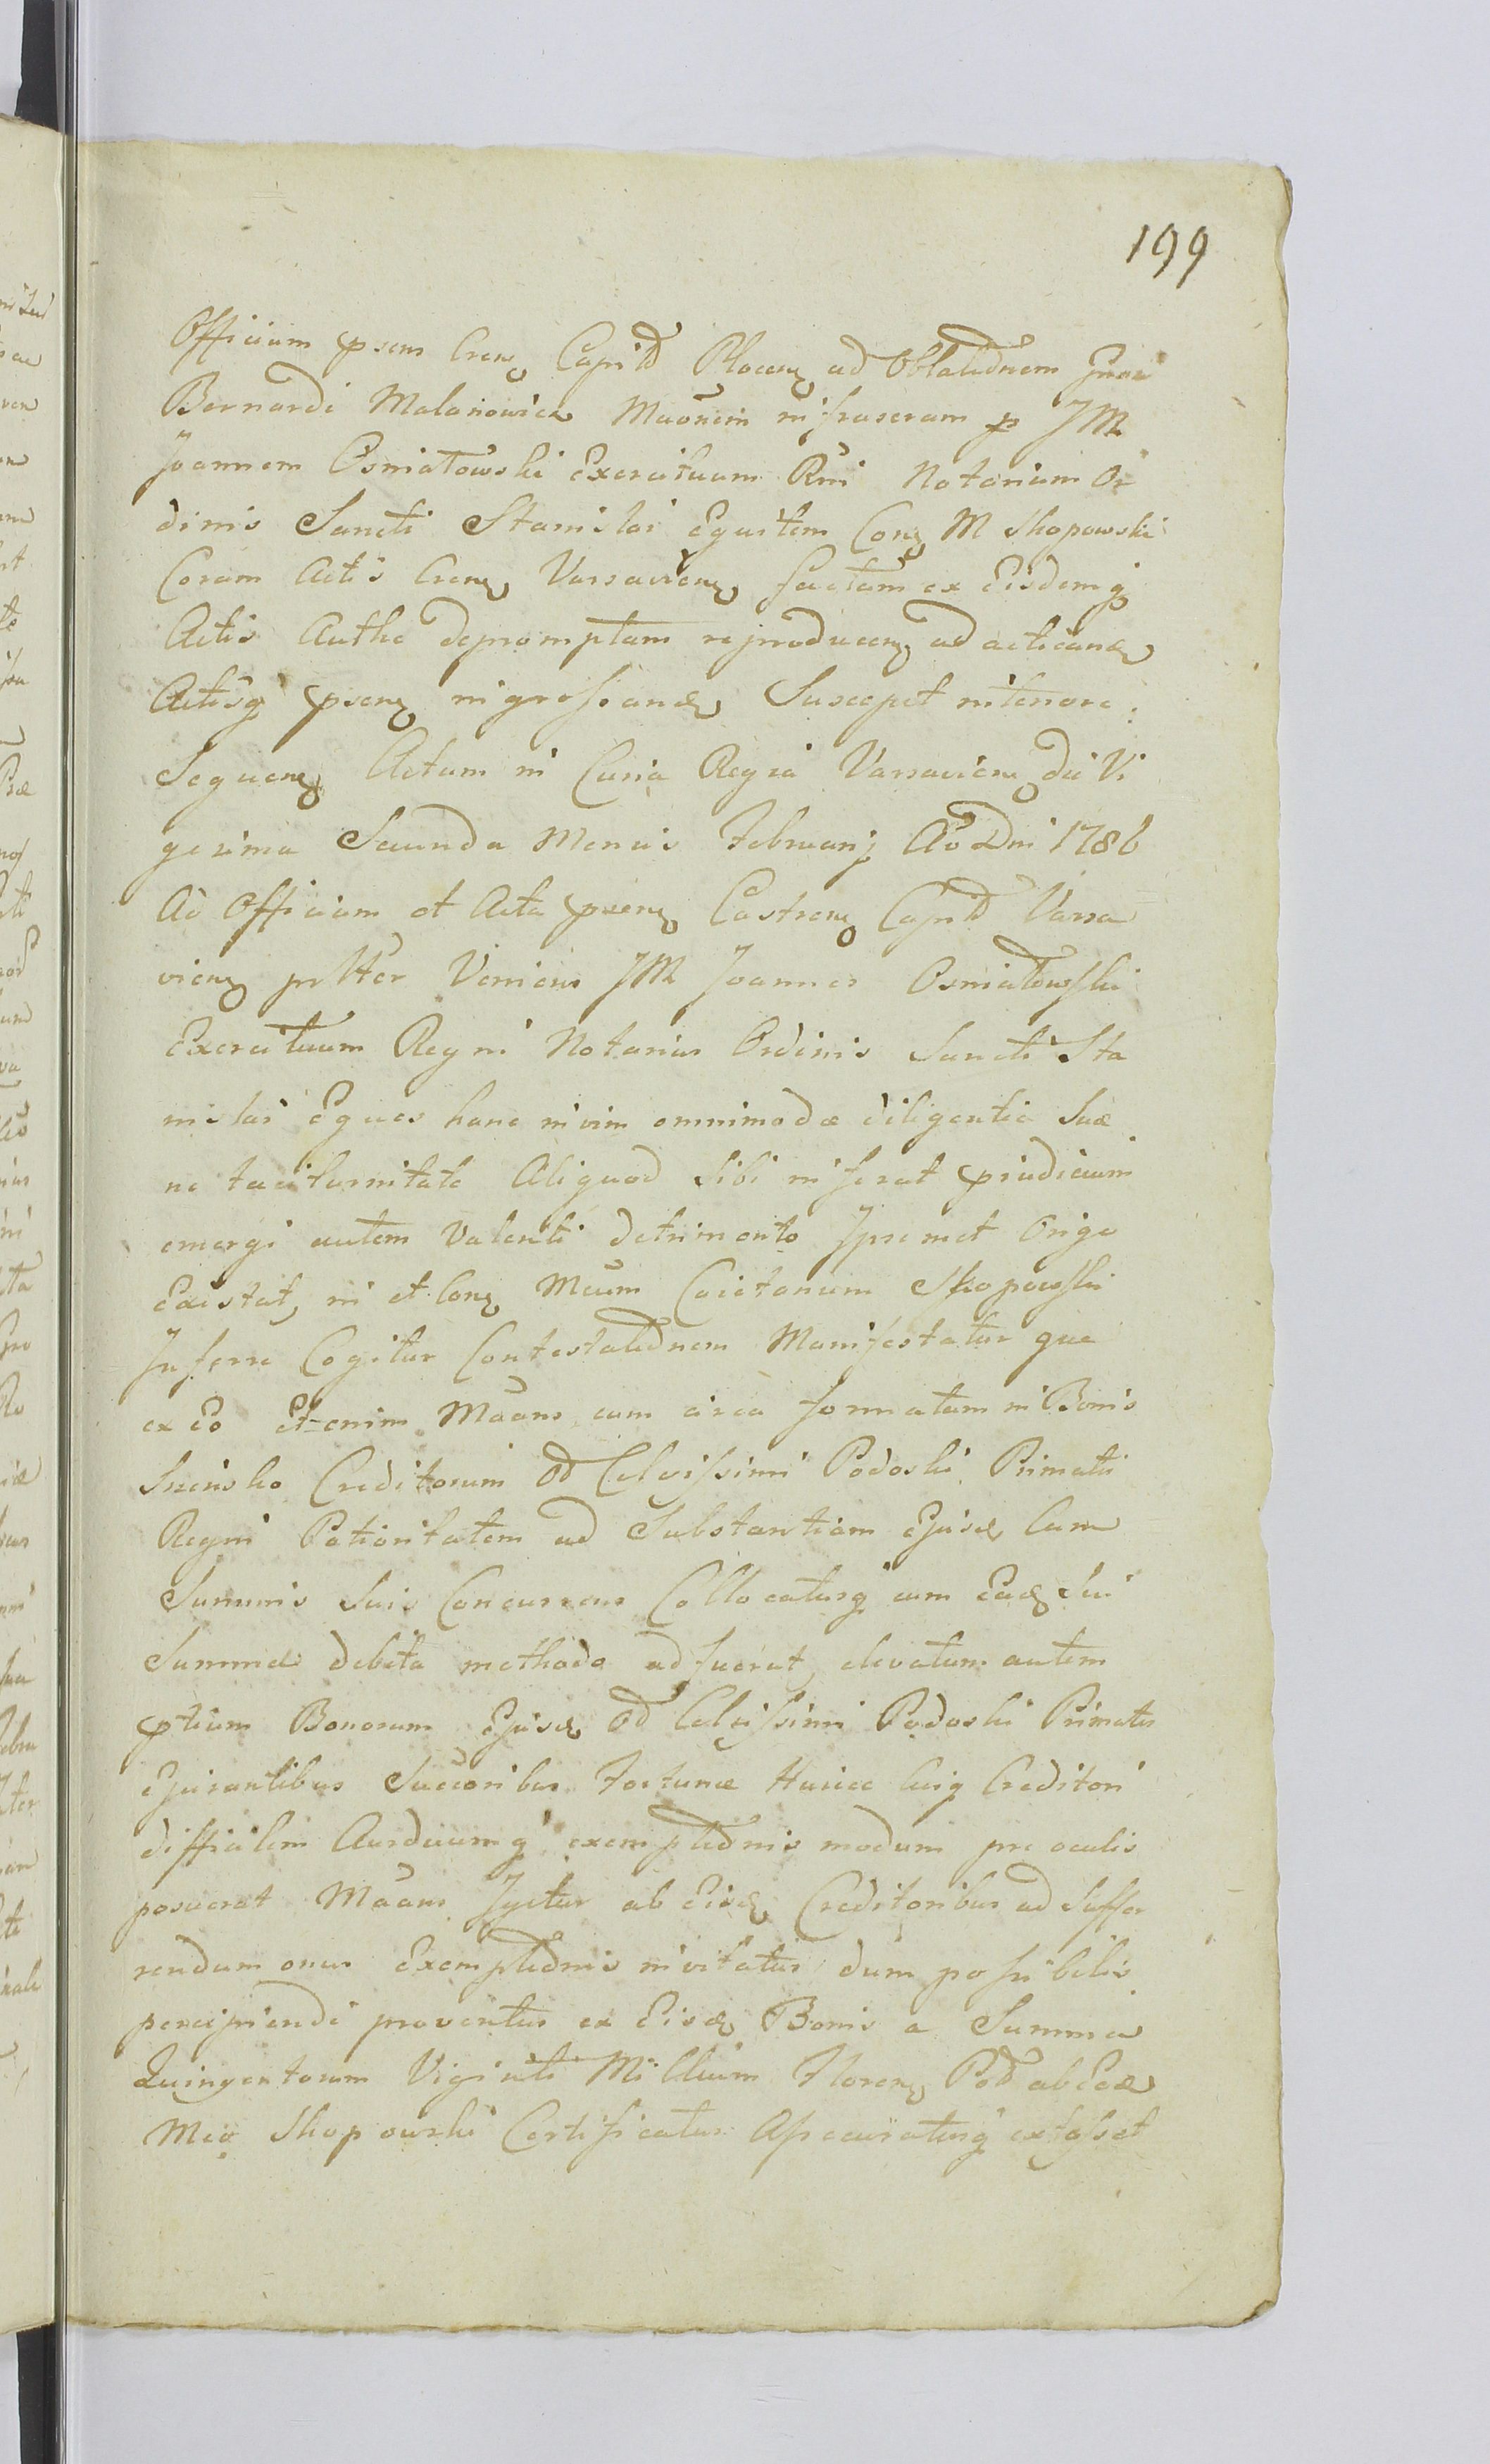 199
Officium psens Crens Capitd Plocens ad Oblatidnem Gnosi
Bernardi Malanowica Maonem infrascram p JM
Joannem Osniatowski Exercituum Rni Notarium Or
dinis Sancti Stanislai Equitem Cons M Skopowski
Coram Actis Crens Varsaviens factam ex Eisdemq
Actis Authe depromptam reproducens ad acticand
Actisq psens ingrossand Suscepit in tenore
Sequens Actum in Curia Regia Varsaviens die Vi
gesima Secunda Mensis Februarij Ao Dni 1786
Ad Officium et Acta psens Castrens Capitd Varsa
viens psltter Veniens JM Joannes Osniatowski
Exercituum Regni Notarius Ordinis Sancti Sta
nislai Eques hanc in vim omnimodæ diligentiæ Suæ
ne taciturnitate Aliquod Sibi inferat pjudicium
emergi autem Valenti detrimento Ipsemet Origo
Existat, in et Cons Mcum Caietanum Skopowski
Inferre Cogitur Contestatidnem Manifestatur que
ex Eo Et-enim Maans cum circa formatam in Bonis
Sreńsko Creditorum Od Celsissimi Podoski Primatis
Regni Potioritatem ad Substantiam Ejusd Cum
Summis Suis Concurrens Collocatusq cum Ead Sui
Summa debita methodo adfuerat, elevatum autem
ptium Bonorum Ejusd Od Celsissimi Podoski Primatis
Ejurantibus Succoribus Fortunæ Huicce Cuiq Creditori
difficilem Arduumq exemptidnis modum præ oculis
posuerat Maans Igitur ab Eisd Creditoribus ad Suffer
rendum onus Exemptidnis invitatus dum possibilis
percipiendi proventus ex Eisd Bonis a Summa
Quingentorum Viginti Millium Florens Pod ab Eod
Mco Skopowski Certificatus Assecuratusq extisset